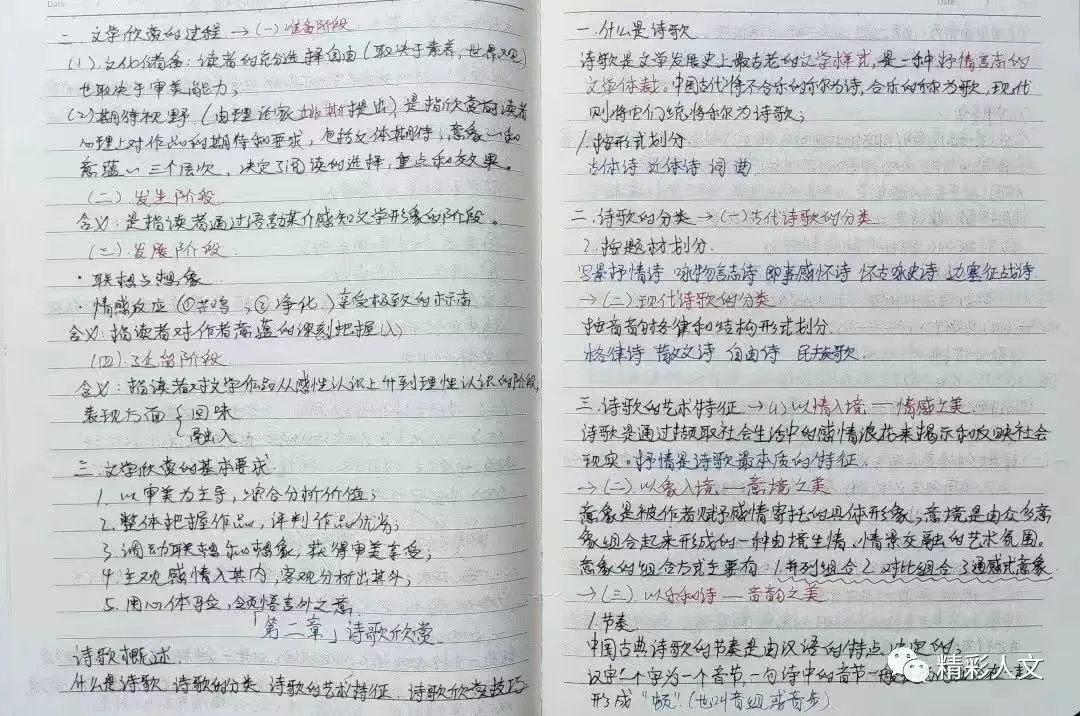 二、文学欣赏的过程→(一)准备阶段
(1)文化储备：读者的充分选择自由(取决于素养，世界观)
也取决于审美能力；
(2)期待视野(由理论家姚斯提出)是指欣赏前读者
心理上对作品的期待和要求，包括文体期待，意象〃和
意蕴〃三个层次，决定了阅读的选择，重点和效果。
(二)发生阶段
含义：是指读者通过语言媒介感知文学形象的阶段。
(三)发展阶段
·联想与想象
·情感反应(①共鸣；②净化)享受极致的标志
含义：指读者对作者意蕴的深刻把握(入)
(四)延留阶段
含义：指读者对文学作品从感性认识上升到理性认识的阶段，
表现方面{回味
融入
三、文学欣赏的基本要求
1.以审美为主导，综合分析价值；
2.整体把握作品，评判作品优劣；
3.调动联想和想象，获得审美享受；
4.主观感情入其内，客观分析出其外；
5.用心体验，领悟言外之意，
「第二章」诗歌欣赏
诗歌概述
什么是诗歌 诗歌的分类 诗歌的艺术特征，诗歌欣赏技巧
一.什么是诗歌
诗歌是文学发展史上最古老的文学样式，是一种抒情言志的
文学体裁。中国古代将不合乐的称为诗，合乐的称为歌，现代
则将它们统称为诗歌；
1.按形式划分
古体诗 近体诗 词 曲
二.诗歌的分类→(一)古代诗歌的分类
2.按题材划分
写景抒情诗 咏物言志诗 即事感怀诗 怀古咏史诗 边塞征战诗
→(二)现代诗歌的分类
按音韵格律和结构形式划分
格律诗 散文诗 自由诗 民族歌
三.诗歌的艺术特征→(1)以情入境—情感之美
诗歌是通过撷取社会生活中的感情浪花来揭示和反映社会
现实。抒情是诗歌最本质的特征.
→(二)以象入境—意境之美
意象是被作者赋予感情寄托的具体形象，意境是由众多意
象组合起来形成的一种由境生情、情景交融的艺术氛围。
意象的组合方式主要有 1.并列组合2.对比组合3通感式意象
→(三)以乐和诗—音韵之美
1.节奏
中国古典诗歌的节奏是由汉语的特点决定的；
汉字一个字为一个音节，一句诗中的音节一般
形成“顿”(也叫音组或音步)
精彩人文